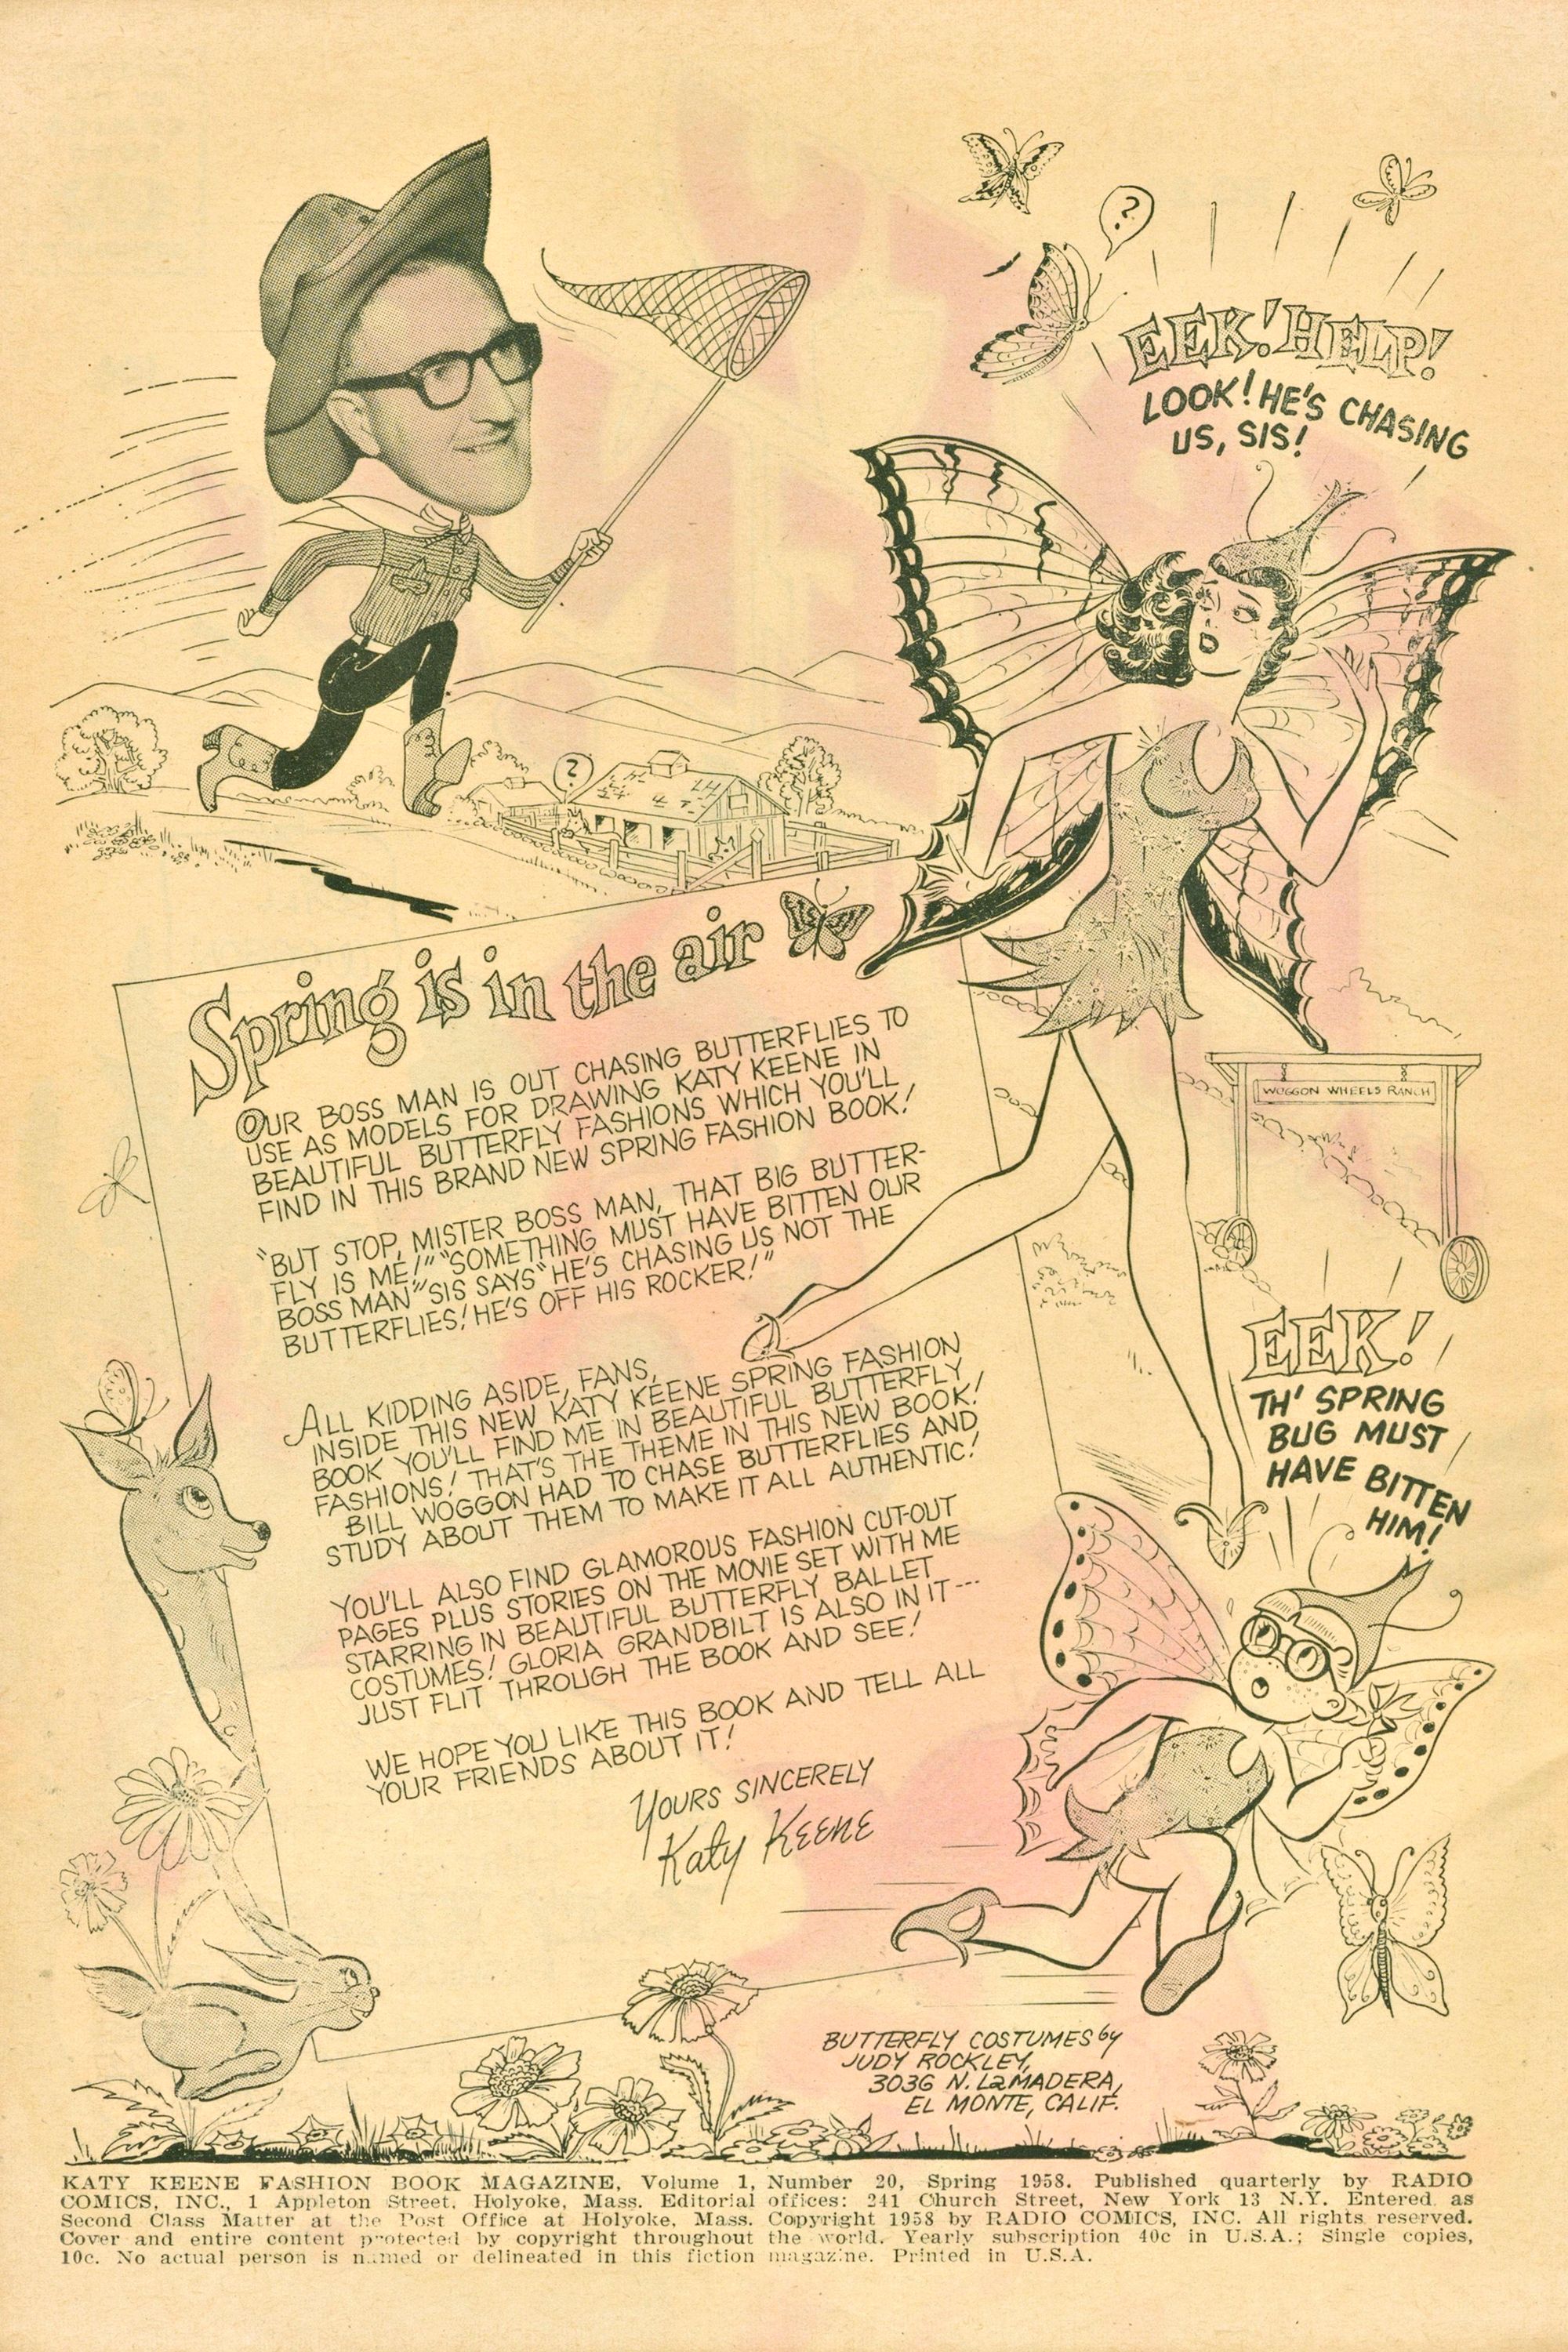 ?
EEK! HELP!
LOOK! HE'S CHASING
US, SIS!
?
Spring is in the air
OUR BOSS MAN IS OUT CHASING BUTTERFLIES TO
USE AS MODELS FOR DRAWING KATY KEENE IN
BEAUTIFUL BUTTERFLY FASHIONS WHICH YOU'LL
FIND IN THIS BRAND NEW SPRING FASHION BOOK!
"BUT STOP, MISTER BOSS MAN, THAT BIG BUTTER-
FLY IS ME!" "SOMETHING MUST HAVE BITTEN OUR
BOSS MAN" SIS SAYS "HE'S CHASING US NOT THE
BUTTERFLIES! HE'S OFF HIS ROCKER!"
ALL KIDDING ASIDE, FANS,
INSIDE THIS NEW KATY KEENE SPRING FASHION
BOOK YOU'LL FIND ME IN BEAUTIFUL BUTTERFLY
FASHIONS! THAT'S THE THEME IN THIS NEW BOOK!
BILL WOGGON HAD TO CHASE BUTTERFLIES AND
STUDY ABOUT THEM TO MAKE IT ALL AUTHENTIC!
YOU'LL ALSO FIND GLAMOROUS FASHION CUT-OUT
PAGES PLUS STORIES ON THE MOVIE SET WITH ME
STARRING IN BEAUTIFUL BUTTERFLY BALLET
COSTUMES! GLORIA GRANDBILT IS ALSO IN IT---
JUST FLIT THROUGH THE BOOK AND SEE!
WE HOPE YOU LIKE THIS BOOK AND TELL ALL
YOUR FRIENDS ABOUT IT!
YOURS SINCERELY
Katy Keene
WOGGON WHEELS RANCH
EEK!
TH' SPRING
BUG MUST
HAVE BITTEN
HIM!
BUTTERFLY COSTUMES by
JUDY ROCKLEY,
3036 N. LaMADERA,
EL MONTE, CALIF.
KATY KEENE FASHION BOOK MAGAZINE, Volume 1, Number 20, Spring 1958. Published quarterly by RADIO
COMICS, INC., 1 Appleton Street, Holyoke, Mass. Editorial offices: 241 Church Street, New York 13 N.Y. Entered as
Second Class Matter at the Post Office at Holyoke, Mass. Copyright 1958 by RADIO COMICS, INC. All rights reserved.
Cover and entire content protected by copyright throughout the world. Yearly subscription 40c in U.S.A.; Single copies,
10c. No actual person is named or delineated in this fiction magazine. Printed in U.S.A.